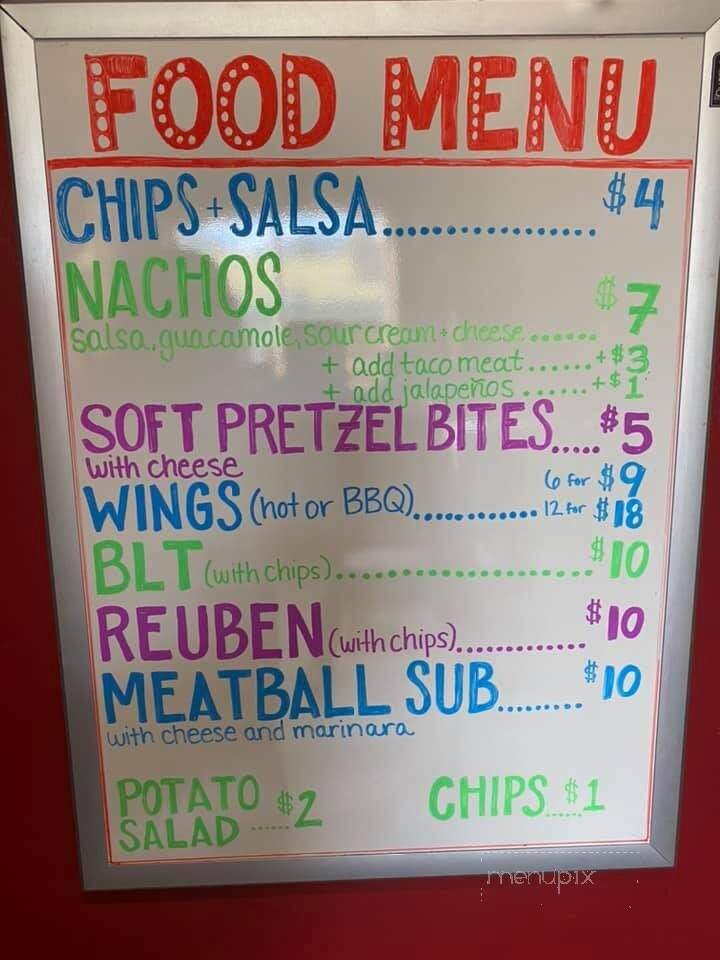 FOOD MENU
CHIPS + SALSA................. $4
NACHOS $7
salsa, guacamole, sour cream + cheese......
+ add taco meat......+$3
+ add jalapeños......+$1
SOFT PRETZEL BITES.....$5
with cheese
WINGS (hot or BBQ)............ 6 for $9
12 for $18
BLT (with chips)...................... $10
REUBEN (with chips)............. $10
MEATBALL SUB......... $10
with cheese and marinara
POTATO SALAD ..... $2
CHIPS..... $1
menupix